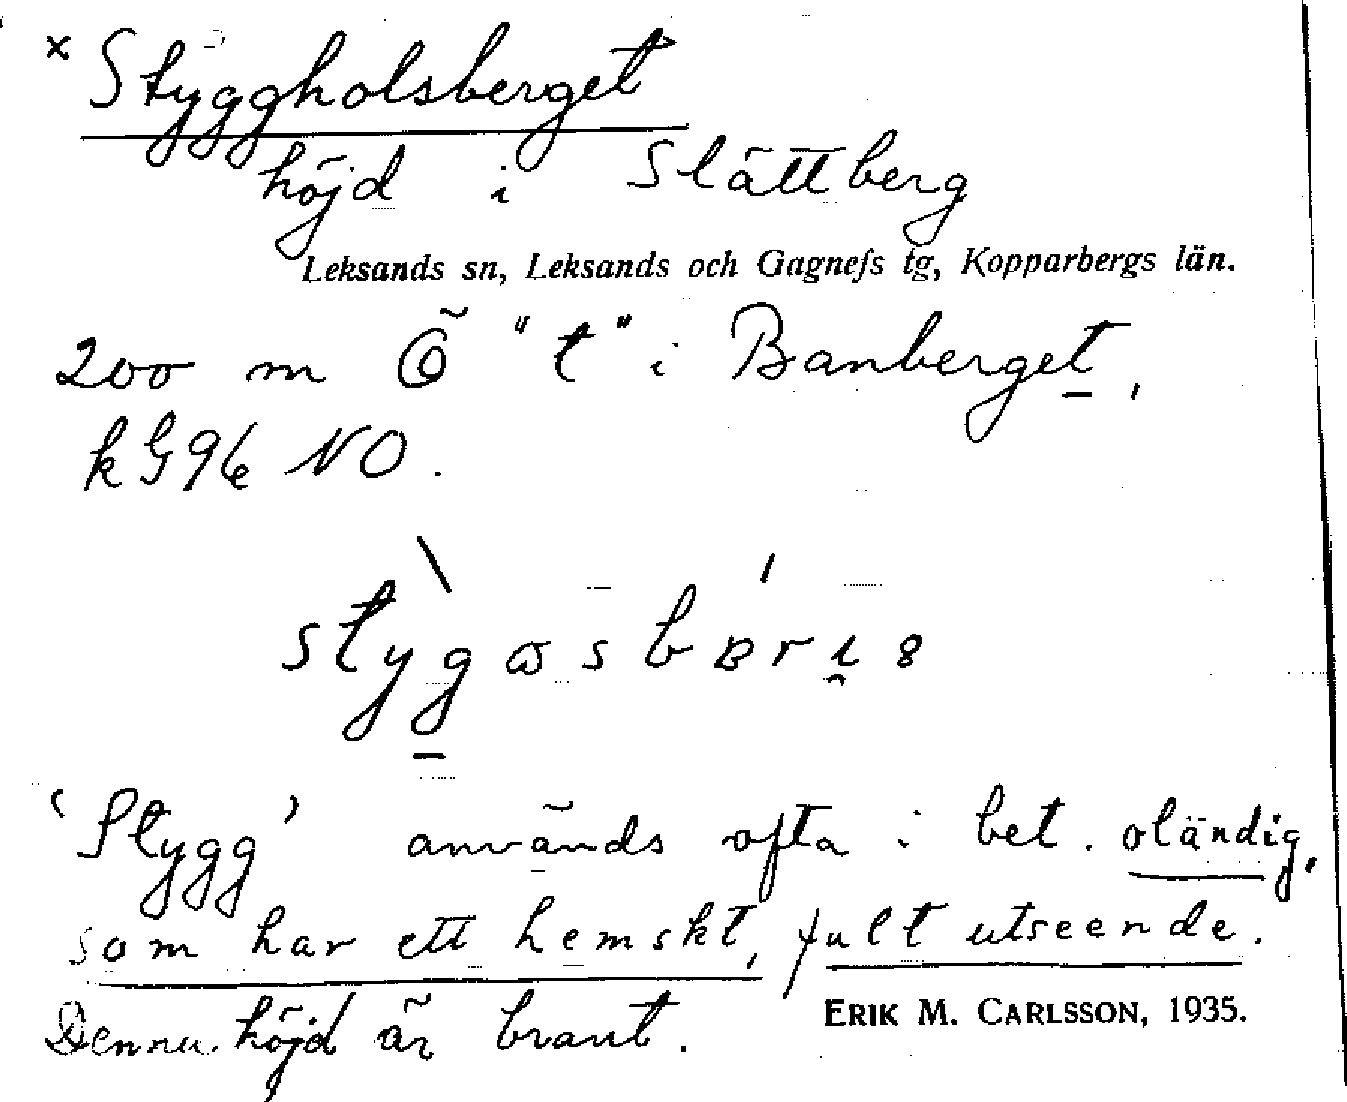 x Styggholsberget
höjd i Slättberg
Leksands sn, Leksands och Gagnefs tg, Kopparbergs län.
200 m Ö "t" i Banberget,
kG96 NO.
'Stygg' används ofta i bet. oländig,
som har ett hemskt, fult utseende.
Denna höjd är brant.
ERIK M. CARLSSON, 1935.